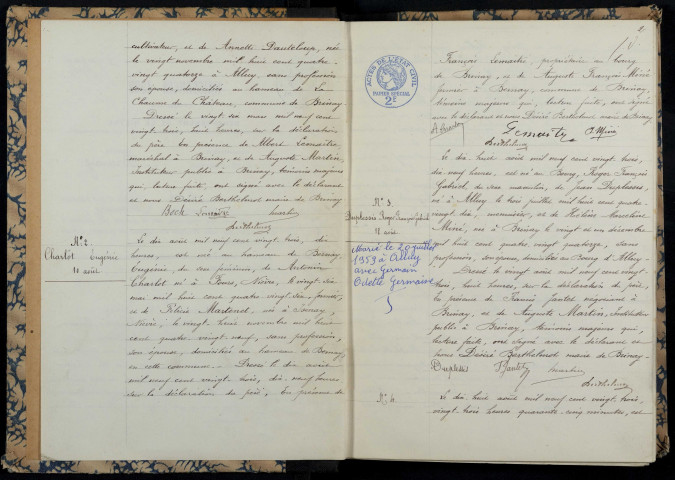 cultivateur, et de Annette Dauteloup, née
le vingt novembre mil huit cent quatre-
vingt quatorze à Alluy, sans profession
son épouse, domiciliés au hameau de La
Chaume du Château, commune de Brinay
Dressé le vingt six mars mil neuf cent
vingt trois, huit heures, sur la déclaration
du père. En présence de Albert Lemaitre,
maréchal à Brinay, et de Auguste Martin,
Instituteur public à Brinay, témoins majeurs
qui, lecture faite, ont signé avec le déclarant
et nous Désiré Berthelinot maire de Brinay
N° 2
Charlot Eugénie
10 août
Le dix août mil neuf cent vingt trois, dix
heures, est née au hameau de
Eugénie, du sexe féminin, de Antonin
Charlot né à Fours, Nièvre, le vingt six
mai mil huit cent quatre vingt dix,
et de Félicie née à
Nièvre, le vingt huit novembre mil huit
cent quatre vingt neuf, sans profession,
son épouse, domiciliés au hameau de
en cette commune. Dressé le dix août
mil neuf cent vingt trois, dix-neuf heures
sur la déclaration du père. En présence de
ACTES DE L'ÉTAT CIVIL
PAPIER SPÉCIAL
2E
François Lemaitre, propriétaire au bourg
de Brinay, et de Auguste François Miné
fermier à Brinay, commune de Brinay,
témoins majeurs qui, lecture faite, ont signé
avec le déclarant et nous Désiré Berthelinot maire de Brinay
Lemaitre
Miné
Berthelinot
N° 3
Duplessis Roger François Gabriel
18 août
Marié le 20 juillet
1953 à Alluy
avec Germain
Odette Germaine
Le dix huit août mil neuf cent vingt trois,
dix neuf heures, est né au Bourg, Roger François
Gabriel, du sexe masculin, de Jean Duplessis,
né à Alluy le trois juillet mil huit cent quatre
vingt dix, menuisier, et de Hélène Marceline
Miné, née à Brinay le vingt et un décembre
mil huit cent quatre vingt quatorze, sans
profession, son épouse, domiciliés au Bourg d'Alluy.
Dressé le vingt août mil neuf cent vingt
trois, huit heures, sur la déclaration du père,
En présence de Francis Jautet négociant à
Brinay, et de Auguste Martin, Instituteur
public à Brinay, témoins majeurs qui,
lecture faite, ont signé avec le déclarant et
nous Désiré Berthelinot maire de Brinay.
Duplessis
Jautet
Martin
Berthelinot
N° 4
Le dix huit août mil neuf cent vingt trois,
vingt trois heures quarante cinq minutes, est